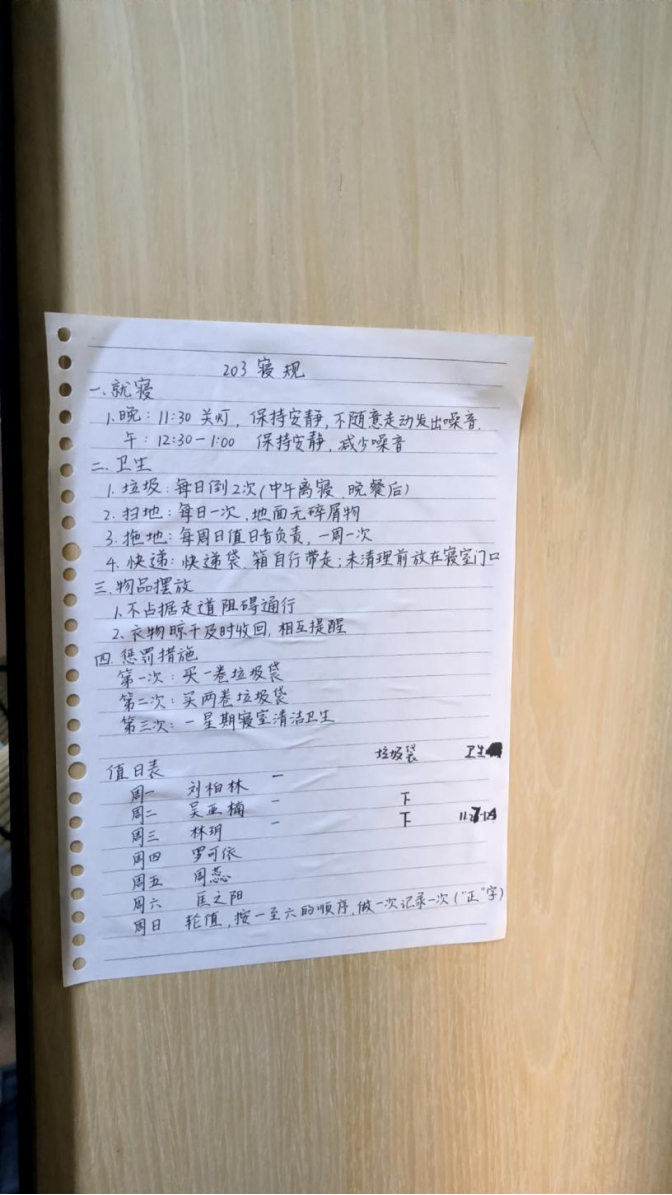 203 寝规
一、就寝
1.晚：11:30 关灯，保持安静，不随意走动发出噪音.
午：12:30-1:00 保持安静，减少噪音
二.卫生
1.垃圾：每日倒2次(中午离寝、晚餐后)
2.扫地：每日一次，地面无碎屑物
3.拖地：每周日值日者负责，一周一次
4.快递：快递袋、箱自行带走；未清理前放在寝室门口
三.物品摆放
1.不占据走道阻碍通行
2.衣物晾干及时收回，相互提醒
四.惩罚措施
第一次：买一卷垃圾袋
第二次：买两卷垃圾袋
第三次：一星期寝室清洁卫生
值日表 垃圾袋 卫生
周一 刘柏林 一
周二 吴亚楠 - 下
周三 林玥 - 下
周四 罗可依
周五 周蕊
周六 匡之阳
周日 轮值，按一至六的顺序，做一次记录一次("正"字)